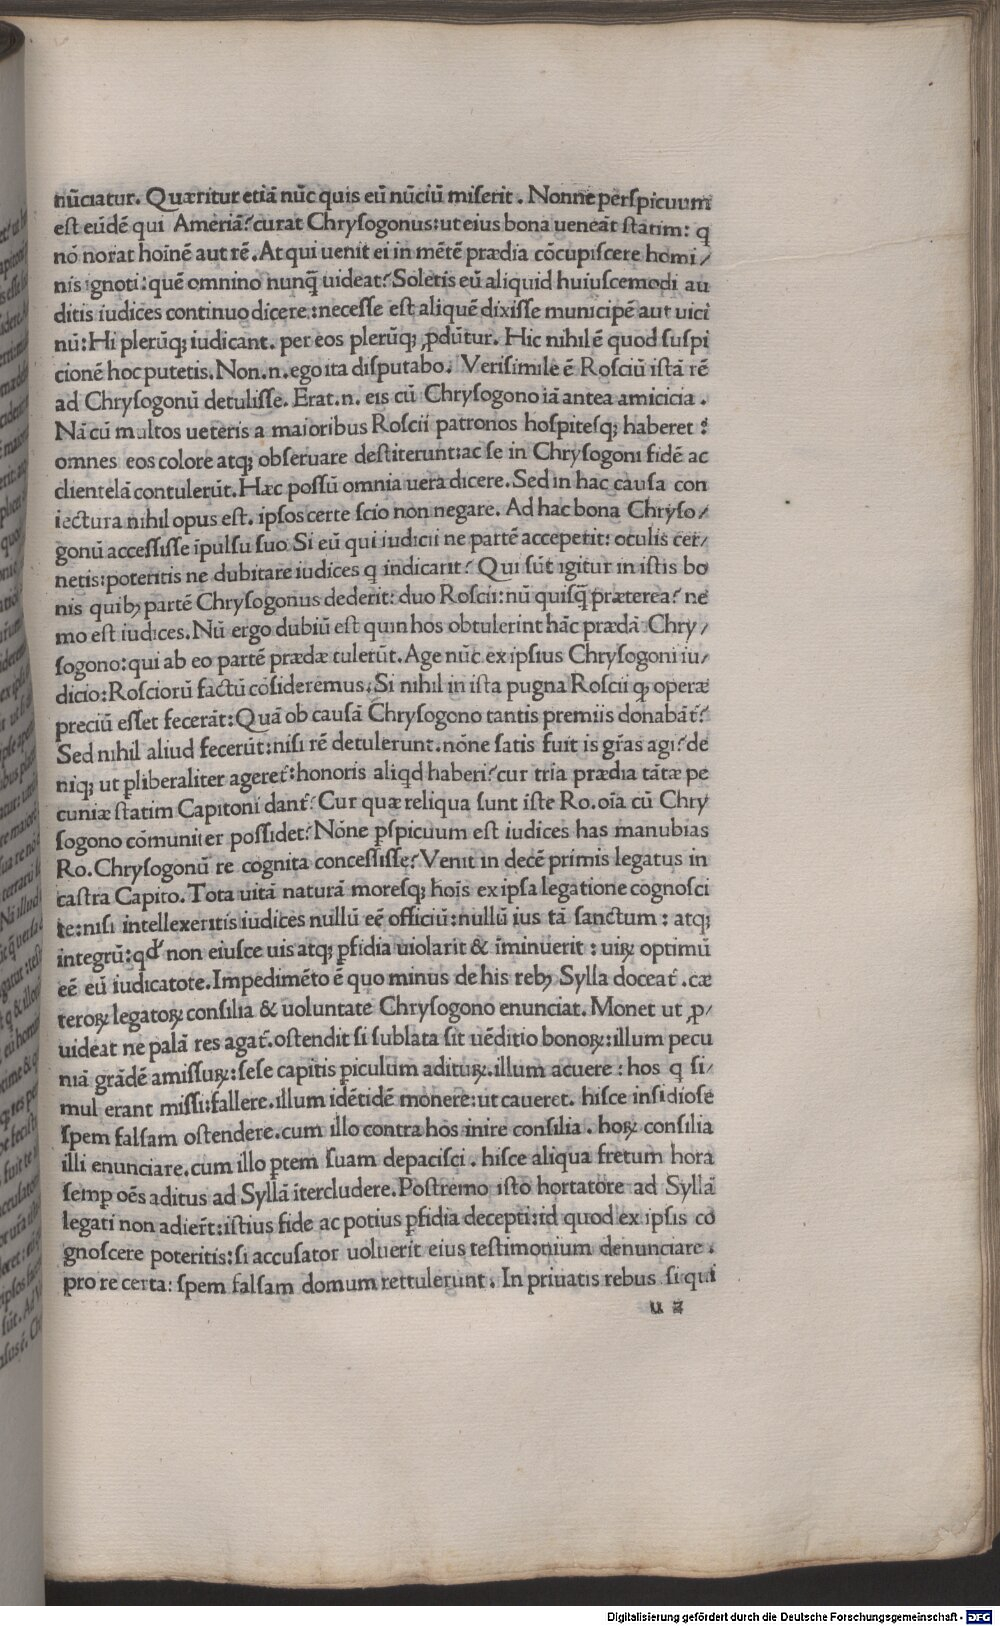 nūciatur. Quæritur etiā nūc quis eū nūciū miſerit. Nonne perſpicuum
eſt eūdē qui Ameriā? curat Chryſogonus: ut eius bona ueneāt ſtatim: q
nō norat hoīnē aut rē. At qui uenit ei in mētē prædia cōcupiſcere homi/
nis ignoti: quē omnino nunq̄ uideat? Soletis eū aliquid huiuſcemodi au
ditis iudices continuo dicere: neceſſe eſt aliquē dixiſſe municipē aut uici
nū: Hi plerūq; iudicant. per eos plerūq; ꝓdūtur. Hic nihil ē quod ſuſpi
cionē hoc putetis. Non. n. ego ita diſputabo. Veriſimile ē Roſciū iſtā rē
ad Chryſogonū detuliſſe. Erat. n. eis cū Chryſogono iā antea amicicia.
Nā cū multos ueteris a maioribus Roſcii patronos hoſpiteſq; haberet?
omnes eos colore atq; obſeruare deſtiterunt: ac ſe in Chryſogoni fidē ac
clientelā contulerūt. Hæc poſſū omnia uera dicere. Sed in hac cauſa con
iectura nihil opus eſt. ipſos certe ſcio non negare. Ad hac bona Chryſo/
gonū acceſſiſſe īpulſu ſuo Si eū qui iudicii ne partē acceperit: oculis cer/
netis: poteritis ne dubitare iudices q indicarit? Qui ſūt igitur in iſtis bo
nis quibꝫ partē Chryſogonus dederit: duo Roſcii: nū quiſq̄ præterea? ne
mo eſt iudices. Nū ergo dubiū eſt quin hos obtulerint hāc prædā Chry/
ſogono: qui ab eo partē prædæ tulerūt. Age nūc ex ipſius Chryſogoni iu/
dicio: Roſciorū factū coſideremus. Si nihil in iſta pugna Roſcii q; operæ
preciū eſſet fecerāt: Quā ob cauſā Chryſogono tantis premiis donabāt?
Sed nihil aliud fecerūt: niſi rē detulerunt. nōne ſatis fuit is gr̄as agi? de
niq; ut ꝑliberaliter ageret̄: honoris aliqd haberi? cur tria prædia tātæ pe
cuniæ ſtatim Capitoni dant̄? Cur quæ reliqua ſunt iſte Ro. oīa cū Chry
ſogono cōmuniter poſſidet? Nōne ꝑſpicuum eſt iudices has manubias
Ro. Chryſogonū re cognita conceſſiſſe? Venit in decē primis legatus in
caſtra Capito. Tota uitā naturā moreſq; hoīs ex ipſa legatione cognoſci
te: niſi intellexeritis iudices nullū eē officiū: nullū ius tā ſanctum: atq;
integrū: qd̓ non eiuſce uis atq; ꝑfidia uiolarit & īminuerit: uiꝝ optimū
eē eū iudicatote. Impedimēto ē quo minus de his rebꝫ Sylla doceat̄. cæ
teroꝝ legatoꝝ conſilia & uoluntate Chryſogono enunciat. Monet ut ꝓ/
uideat ne palā res agat̄. oſtendit ſi ſublata ſit uēditio bonoꝝ: illum pecu
niā grādē amiſſuꝝ: ſeſe capitis ꝑiculum adituꝝ. illum acuere: hos q ſi/
mul erant miſſi: fallere. illum idētidē monere: ut caueret. hiſce inſidioſe
ſpem falſam oſtendere. cum illo contra hos inire conſilia. hoꝝ conſilia
illi enunciare. cum illo ꝑtem ſuam depaciſci. hiſce aliqua fretum hora
ſemꝑ oēs aditus ad Syllā ītercludere. Poſtremo iſto hortatore ad Syllā
legati non adier̄t: iſtius fide ac potius ꝑfidia decepti: id quod ex ipſis co
gnoſcere poteritis: ſi accuſator uoluerit eius teſtimonium denunciare.
pro re certa: ſpem falſam domum rettulerunt. In priuatis rebus ſi qui
u 2
Digitalisierung gefördert durch die Deutsche Forschungsgemeinschaft - DFG